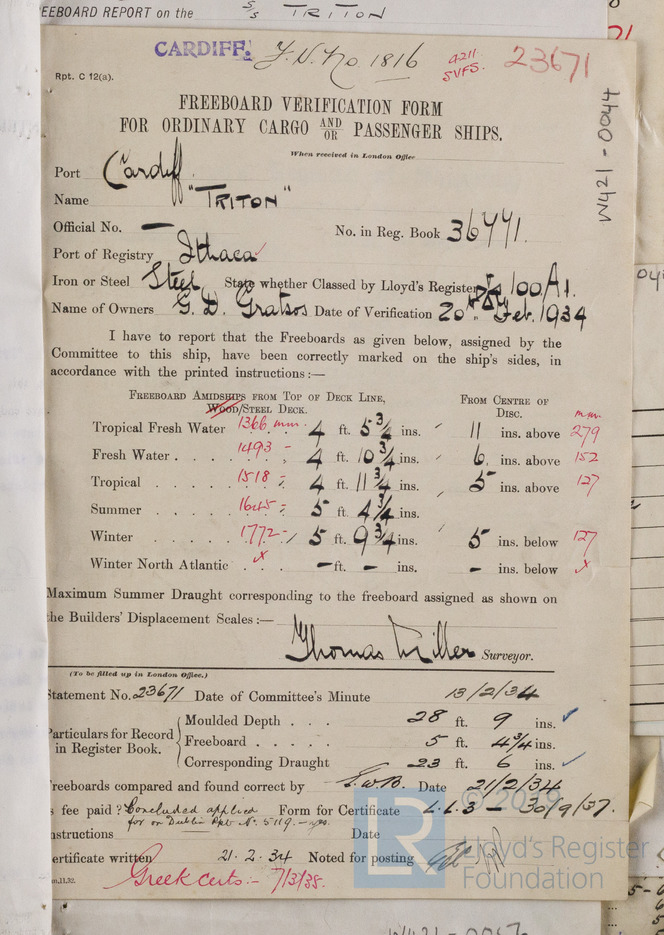 FREEBOARD REPORT on the S/S TRITON
CARDIFF. F.N. No 1816
Rpt. C 12(a).
a211 SVFS. 23671
W421-0044
FREEBOARD VERIFICATION FORM
FOR ORDINARY CARGO AND/OR PASSENGER SHIPS.
When received in London Office
Port Cardiff
Name "TRITON"
Official No. — No. in Reg. Book 36441.
Port of Registry Ithaca
Iron or Steel Steel State whether Classed by Lloyd's Register 100A1.
Name of Owners G. D. Gratsos Date of Verification 20th Feb. 1934
I have to report that the Freeboards as given below, assigned by the
Committee to this ship, have been correctly marked on the ship's sides, in
accordance with the printed instructions:—
FREEBOARD AMIDSHIPS FROM TOP OF DECK LINE, FROM CENTRE OF
WOOD/STEEL DECK. DISC.
mm.
Tropical Fresh Water 1366 mm. 4 ft. 5 3/4 ins. 11 ins. above 279
Fresh Water . . . 1493 - 4 ft. 10 3/4 ins. 6 ins. above 152
Tropical . . . . 1518 - 4 ft. 11 3/4 ins. 5 ins. above 127
Summer . . . . 1645 - 5 ft. 4 3/4 ins.
Winter . . . . 1772 - 5 ft. 9 3/4 ins. 5 ins. below 127
Winter North Atlantic . x . — ft. — ins. — ins. below x
Maximum Summer Draught corresponding to the freeboard assigned as shown on
the Builders' Displacement Scales:—
Thomas Miller Surveyor.
(To be filled up in London Office.)
Statement No. 23671 Date of Committee's Minute 13/2/34
Particulars for Record in Register Book.
Moulded Depth . . . 28 ft. 9 ins.
Freeboard . . . . . 5 ft. 4 3/4 ins.
Corresponding Draught 23 ft. 6 ins.
Freeboards compared and found correct by Date 21/2/34
Is fee paid? Concluded applied Form for Certificate L.L.3 - 30/9/37.
for on Dublin Rpt No. 5119.
Instructions Date
Certificate written 21.2.34 Noted for posting
Greek certs:- 7/3/35.
© 2019
LR
Lloyd's Register
Foundation